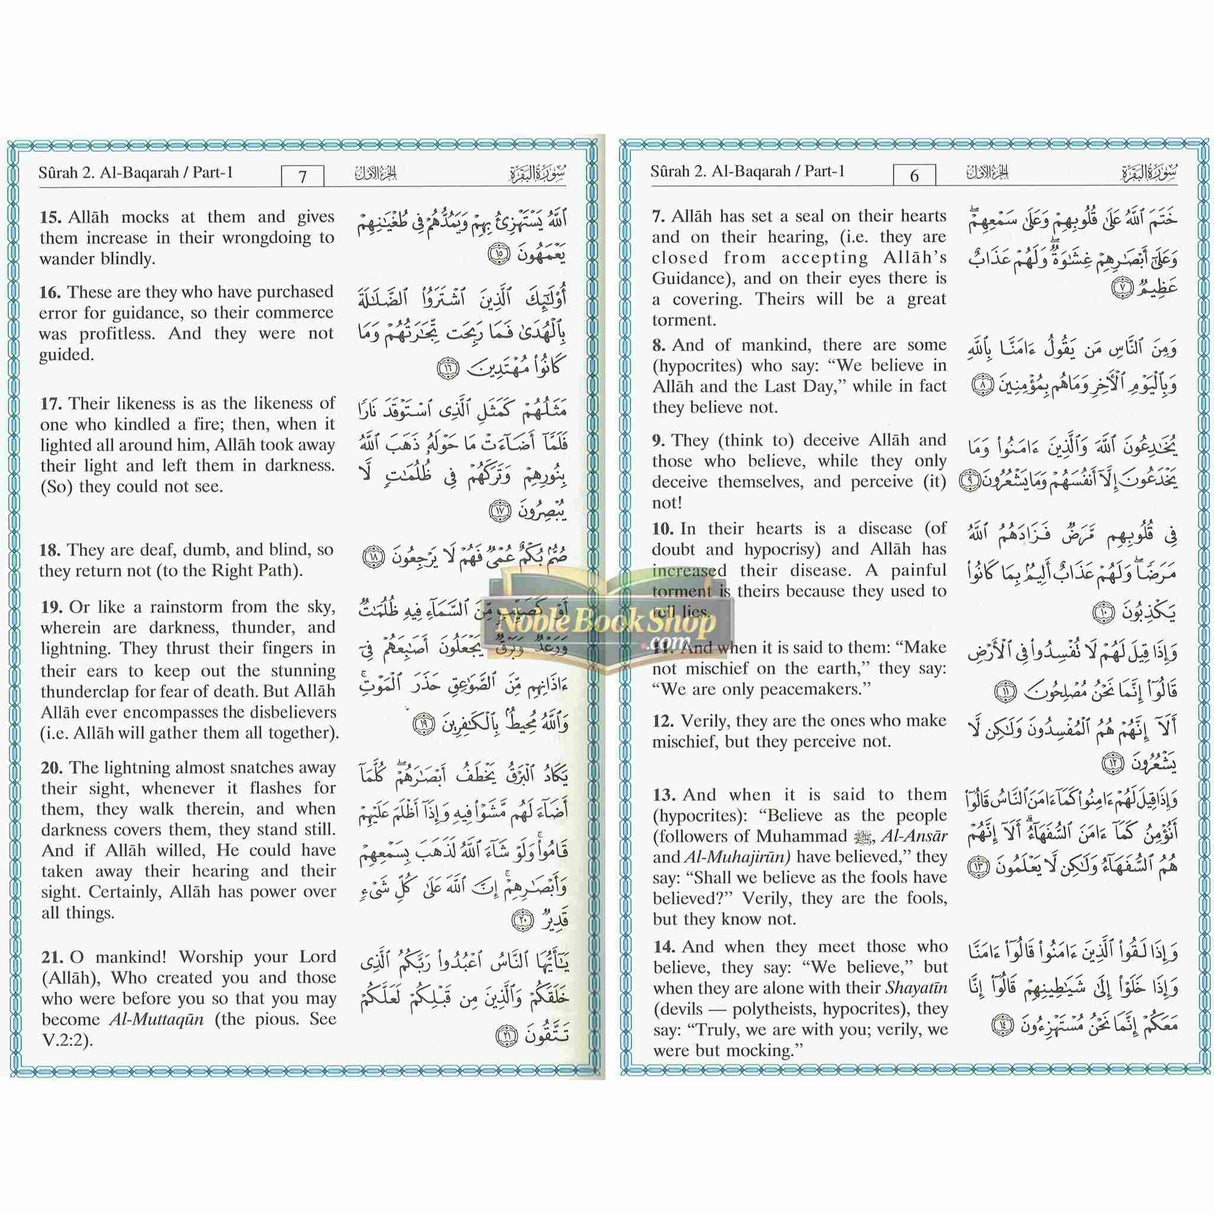 Sûrah 2. Al-Baqarah / Part-1
6
الجزء الأول
سورة البقرة
7. Allāh has set a seal on their hearts
and on their hearing, (i.e. they are
closed from accepting Allāh’s
Guidance), and on their eyes there is
a covering. Theirs will be a great
torment.
خَتَمَ ٱللَّهُ عَلَىٰ قُلُوبِهِمْ وَعَلَىٰ سَمْعِهِمْ ۖ
وَعَلَىٰٓ أَبْصَـٰرِهِمْ غِشَـٰوَةٌ ۖ وَلَهُمْ عَذَابٌ
عَظِيمٌ ٧
8. And of mankind, there are some
(hypocrites) who say: “We believe in
Allāh and the Last Day,” while in fact
they believe not.
وَمِنَ ٱلنَّاسِ مَن يَقُولُ ءَامَنَّا بِٱللَّهِ
وَبِٱلْيَوْمِ ٱلْـَٔاخِرِ وَمَا هُم بِمُؤْمِنِينَ ٨
9. They (think to) deceive Allāh and
those who believe, while they only
deceive themselves, and perceive (it)
not!
يُخَـٰدِعُونَ ٱللَّهَ وَٱلَّذِينَ ءَامَنُوا۟ وَمَا
يَخْدَعُونَ إِلَّآ أَنفُسَهُمْ وَمَا يَشْعُرُونَ ٩
10. In their hearts is a disease (of
doubt and hypocrisy) and Allāh has
increased their disease. A painful
torment is theirs because they used to
tell lies.
فِى قُلُوبِهِم مَّرَضٌ فَزَادَهُمُ ٱللَّهُ
مَرَضًا ۖ وَلَهُمْ عَذَابٌ أَلِيمٌۢ بِمَا كَانُوا۟
يَكْذِبُونَ ١٠
11. And when it is said to them: “Make
not mischief on the earth,” they say:
“We are only peacemakers.”
وَإِذَا قِيلَ لَهُمْ لَا تُفْسِدُوا۟ فِى ٱلْأَرْضِ
قَالُوٓا۟ إِنَّمَا نَحْنُ مُصْلِحُونَ ١١
12. Verily, they are the ones who make
mischief, but they perceive not.
أَلَآ إِنَّهُمْ هُمُ ٱلْمُفْسِدُونَ وَلَـٰكِن لَّا
يَشْعُرُونَ ١٢
13. And when it is said to them
(hypocrites): “Believe as the people
(followers of Muhammad ﷺ, Al-Ansār
and Al-Muhajirūn) have believed,” they
say: “Shall we believe as the fools have
believed?” Verily, they are the fools,
but they know not.
وَإِذَا قِيلَ لَهُمْ ءَامِنُوا۟ كَمَآ ءَامَنَ ٱلنَّاسُ قَالُوٓا۟
أَنُؤْمِنُ كَمَآ ءَامَنَ ٱلسُّفَهَآءُ ۗ أَلَآ إِنَّهُمْ
هُمُ ٱلسُّفَهَآءُ وَلَـٰكِن لَّا يَعْلَمُونَ ١٣
14. And when they meet those who
believe, they say: “We believe,” but
when they are alone with their Shayatīn
(devils — polytheists, hypocrites), they
say: “Truly, we are with you; verily, we
were but mocking.”
وَإِذَا لَقُوا۟ ٱلَّذِينَ ءَامَنُوا۟ قَالُوٓا۟ ءَامَنَّا
وَإِذَا خَلَوْا۟ إِلَىٰ شَيَـٰطِينِهِمْ قَالُوٓا۟ إِنَّا
مَعَكُمْ إِنَّمَا نَحْنُ مُسْتَهْزِءُونَ ١٤
Sûrah 2. Al-Baqarah / Part-1
7
الجزء الأول
سورة البقرة
15. Allāh mocks at them and gives
them increase in their wrongdoing to
wander blindly.
ٱللَّهُ يَسْتَهْزِئُ بِهِمْ وَيَمُدُّهُمْ فِى طُغْيَـٰنِهِمْ
يَعْمَهُونَ ١٥
16. These are they who have purchased
error for guidance, so their commerce
was profitless. And they were not
guided.
أُو۟لَـٰٓئِكَ ٱلَّذِينَ ٱشْتَرَوُا۟ ٱلضَّلَـٰلَةَ
بِٱلْهُدَىٰ فَمَا رَبِحَت تِّجَـٰرَتُهُمْ وَمَا
كَانُوا۟ مُهْتَدِينَ ١٦
17. Their likeness is as the likeness of
one who kindled a fire; then, when it
lighted all around him, Allāh took away
their light and left them in darkness.
(So) they could not see.
مَثَلُهُمْ كَمَثَلِ ٱلَّذِى ٱسْتَوْقَدَ نَارًا
فَلَمَّآ أَضَآءَتْ مَا حَوْلَهُۥ ذَهَبَ ٱللَّهُ
بِنُورِهِمْ وَتَرَكَهُمْ فِى ظُلُمَـٰتٍ لَّا
يُبْصِرُونَ ١٧
18. They are deaf, dumb, and blind, so
they return not (to the Right Path).
صُمٌّۢ بُكْمٌ عُمْىٌ فَهُمْ لَا يَرْجِعُونَ ١٨
19. Or like a rainstorm from the sky,
wherein are darkness, thunder, and
lightning. They thrust their fingers in
their ears to keep out the stunning
thunderclap for fear of death. But Allāh
Allāh ever encompasses the disbelievers
(i.e. Allāh will gather them all together).
أَوْ كَصَيِّبٍ مِّنَ ٱلسَّمَآءِ فِيهِ ظُلُمَـٰتٌ
وَرَعْدٌ وَبَرْقٌ يَجْعَلُونَ أَصَـٰبِعَهُمْ فِىٓ
ءَاذَانِهِم مِّنَ ٱلصَّوَٰعِقِ حَذَرَ ٱلْمَوْتِ ۚ
وَٱللَّهُ مُحِيطٌۢ بِٱلْكَـٰفِرِينَ ١٩
20. The lightning almost snatches away
their sight, whenever it flashes for
them, they walk therein, and when
darkness covers them, they stand still.
And if Allāh willed, He could have
taken away their hearing and their
sight. Certainly, Allāh has power over
all things.
يَكَادُ ٱلْبَرْقُ يَخْطَفُ أَبْصَـٰرَهُمْ ۖ كُلَّمَآ
أَضَآءَ لَهُم مَّشَوْا۟ فِيهِ وَإِذَآ أَظْلَمَ عَلَيْهِمْ
قَامُوا۟ ۚ وَلَوْ شَآءَ ٱللَّهُ لَذَهَبَ بِسَمْعِهِمْ
وَأَبْصَـٰرِهِمْ ۚ إِنَّ ٱللَّهَ عَلَىٰ كُلِّ شَىْءٍ
قَدِيرٌ ٢٠
21. O mankind! Worship your Lord
(Allāh), Who created you and those
who were before you so that you may
become Al-Muttaqūn (the pious. See
V.2:2).
يَـٰٓأَيُّهَا ٱلنَّاسُ ٱعْبُدُوا۟ رَبَّكُمُ ٱلَّذِى
خَلَقَكُمْ وَٱلَّذِينَ مِن قَبْلِكُمْ لَعَلَّكُمْ
تَتَّقُونَ ٢١
NobleBookShop
.com